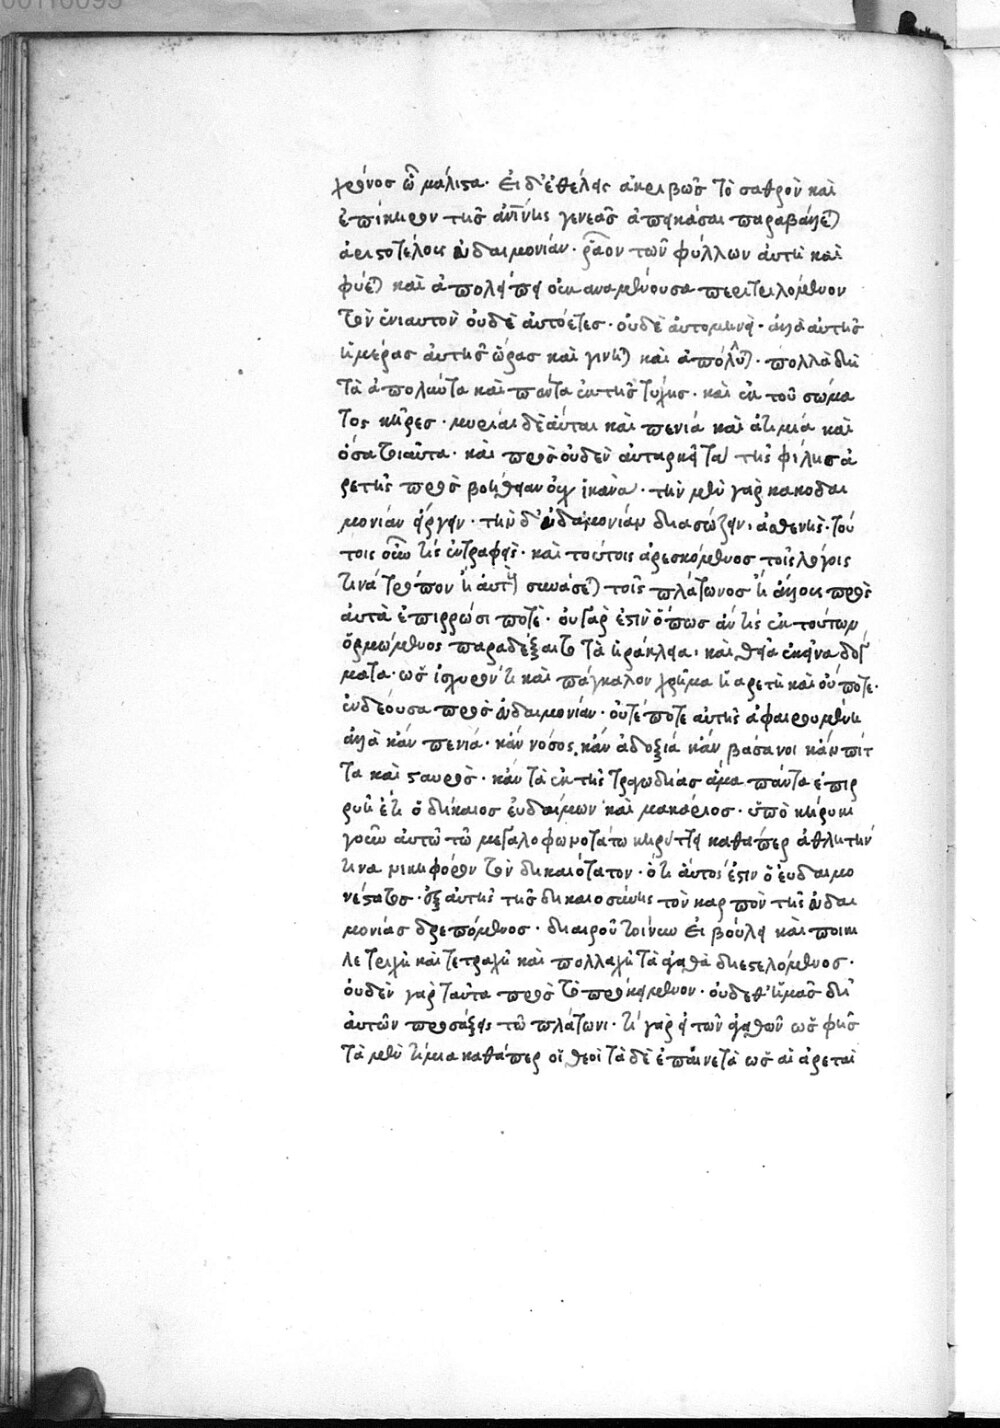 χρόνος ὢν μάλιστα· εἰ δ' ἐθέλεις ἀκριβῶς τὸ σαθρὸν καὶ
ἐπίκηρον τῆς ἀν̅ίνης γενεᾶς ἀπεικάσαι παραβάλλεται
ἀριστοτέλους εὐδαιμονίαν· ῥᾷον τῶν φύλλων αὐτὴ καὶ
φύεται καὶ ἀπολείπει οὐκ ἀναμένουσα περιτελλόμενον
τὸν ἐνιαυτὸν οὐδὲ αὐτόετες· οὐδὲ αὐτομηνεὶ· ἀλλὰ αὐτῆς
ἡμέρας αὐτῆς ὥρας καὶ γίνεται καὶ ἀπόλλυται· πολλὰ δὴ
τὰ ἀπολλύντα καὶ πάντα ἐκ τῆς τύχης· καὶ ἐκ τοῦ σώμα
τος κῆρες· μυρίαι δὲ αὗται καὶ πενία καὶ ἀτιμία καὶ
ὅσα τοιαῦτα· καὶ πρὸς οὐδὲν αὐτάρκη τὰ τῆς φίλης ἀ
ρετῆς πρὸς βοήθειαν οὐχ ἱκανὰ· τὴν μὲν γὰρ κακοδαι
μονίαν εἴργειν· τὴν δ' εὐδαιμονίαν διασώζειν, ἀσθενὴς· τού
τοις οὖν τὶς ἐντραφεὶς· καὶ τούτοις ἀρεσκόμενος τοῖς λόγοις
τίνα τρόπον ἢ αὐτὸς συνάσεται τοῖς πλάτωνος ἢ ἄλλους πρὸς
αὐτὰ ἐπιρρώσει ποτέ· οὐ γὰρ ἔστιν ὅπως ἄν τίς ἐκ τούτων
ὁρμώμενος παραδέξαιτο τὰ ἡράκλεια· καὶ θεῖα ἐκεῖνα δόγ
ματα· ὡς ἰσχυρόν τι καὶ πάγκαλον χρῆμα ἡ ἀρετὴ καὶ οὔποτε
ἐνδέουσα πρὸς εὐδαιμονίαν· οὔτέ ποτε αὐτῆς ἀφαιρουμένη
ἀλλὰ κἂν πενία· κἂν νόσος, κἂν ἀδοξία κἂν βάσανοι κἂν πίτ
τα καὶ σταυρὸς· κἂν τὰ ἐκ τῆς τραγῳδίας ἅμα πάντα ἐπιρ
ρυῇ ἔτι ὁ δίκαιος εὐδαίμων καὶ μακάριος· ὑπὸ κήρυκι
γοῦν αὐτῷ τῷ μεγαλοφωνοτάτῳ κηρύττει καθάπερ ἀθλητήν
τινα νικηφόρον τὸν δικαιότατον· ὅτι αὐτός ἐστιν ὁ εὐδαιμο
νέστατος· ἐξ αὐτῆς τῆς δικαιοσύνης τὸν καρπὸν τῆς εὐδαι
μονίας δρεπόμενος· διαιροῦ τοίνυν εἰ βούλει καὶ ποίκι
λε τριχῇ καὶ τετραχῇ καὶ πολλαχῇ τἀγαθὰ διεστελόμενος·
οὐδὲν γὰρ ταῦτα πρὸς τὸ προκείμενον· οὐδέποθ' ἡμᾶς δι'
αὐτῶν προσάξεις τῷ πλάτωνι· τί γὰρ εἰ τῶν ἀγαθῶν ὡς φῂς
τὰ μὲν τίμια καθάπερ οἱ θεοὶ τὰ δὲ ἐπαινετὰ ὡς αἱ ἀρεταὶ